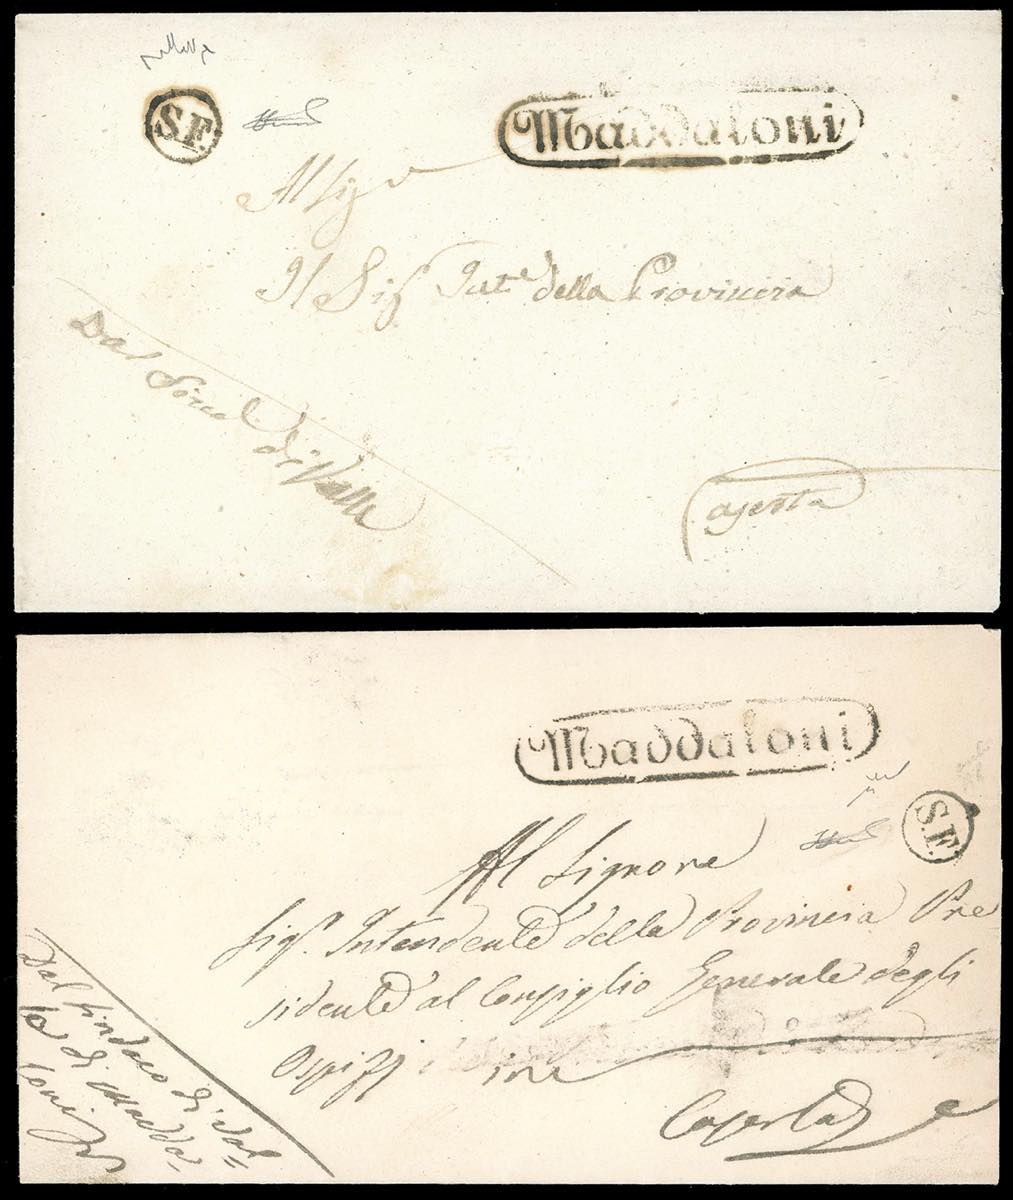 S.F.
Maddaloni
Al Sig.re
Il Sig.r Int.e della Provincia
Dal Sindo di Valle
Caserta
Maddaloni
S.F.
Al Signore
Sig.r Intendente della Provincia Pre
sidente al Consiglio Generale degli
Ospizj in
Caserta
Dal Sindaco di Val=
le di Madda=
loni